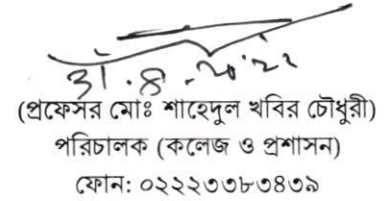 (প্রফেসর মোঃ শাহেদুল খবির চৌধুরী)
পরিচালক (কলেজ ও প্রশাসন)
ফোন: ০২২২৩৩৮৩৪৩৯